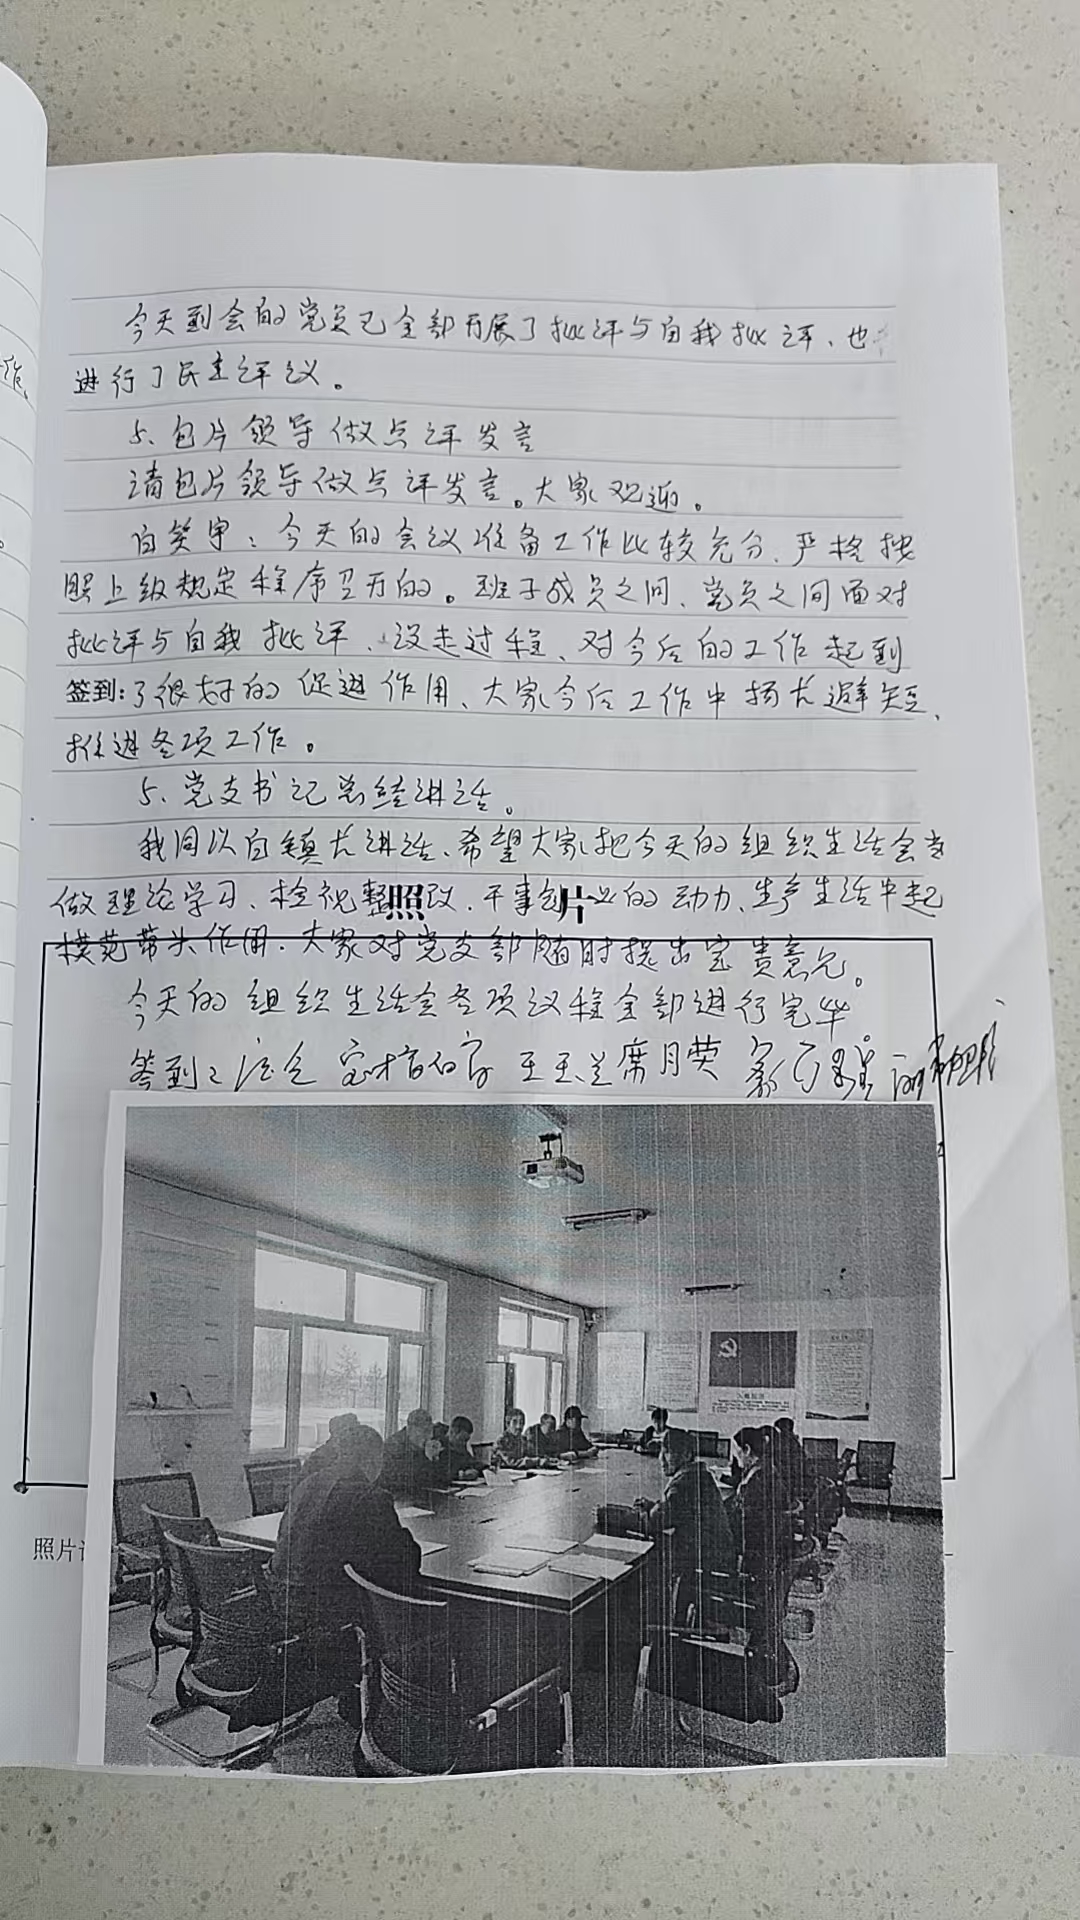 作。
今天到会的党员已全部开展了批评与自我批评、也
进行了民主评议。
5、包片领导做点评发言
请包片领导做点评发言。大家欢迎。
白笑宇：今天的会议准备工作比较充分、严格按
照上级规定程序召开的。班子成员之间、党员之间面对
批评与自我批评、没走过程、对今后的工作起到
签到：了很好的促进作用、大家今后工作中扬长避短、
推进各项工作。
5、党支书记总结讲话。
我同意白镇长讲话、希望大家把今天的组织生活会当
做理论学习、检视整改、干事创业的动力、生产生活中起
照 片
模范带头作用。大家对党支部随时提出宝贵意见。
今天的组织生活会各项议程全部进行完毕
签到：王玉兰 席月英
照片